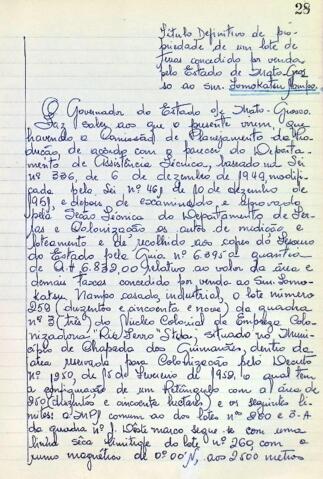 28
Título Definitivo de pro-
priedade de um lote de
terras concedido por venda
pelo Estado de Mato-Gros-
so ao snr. Tomokatsu Nampo.
O Governador do Estado de Mato-Grosso.
Faz saber aos que o presente virem, que
havendo a Comissão de Planejamento da Pro-
dução, de acordo com o parecer do Departa-
mento de Assistência Técnica, baseado na Lei
nº 336, de 6 de dezembro de 1949, modifi-
cada pela Lei nº 461, de 10 de dezembro de
1951, e depois de examinado e aprovado
pela Seção Técnica do Departamento de Ter-
ras e Colonização os autos de medição e
loteamento e de recolhido aos cofres do Tesouro
do Estado pela Guia nº 6.095 a quantia
de 6.832,00 relativo ao valor da área e
demais taxas concedido por venda ao Snr. Tomo-
katsu Nampo, casado, industrial, o lote número
259 (duzentos e cincoenta e nove) da quadra
nº 3 (três) do Núcleo Colonial da Empreza Colo-
nizadora "Rio Ferro Ltda, situado no Muni-
cípio de Chapada dos Guimarães, dentro da
área reservada para Colonização pelo Decreto
nº 1.950, de 15 de Fevereiro de 1952, o qual tem
a configuração de um Retângulo com a área de
250 (duzentos e cincoenta hectares) e os seguintes li-
mites: o MP1 comum ao dos lotes nºs 280 e 3-A
da quadra nº 1. Dêste marco segue-se com uma
linha sêca limítrofe do lote nº 260, com o
rumo magnético de 0º00'N, aos 2500 metros